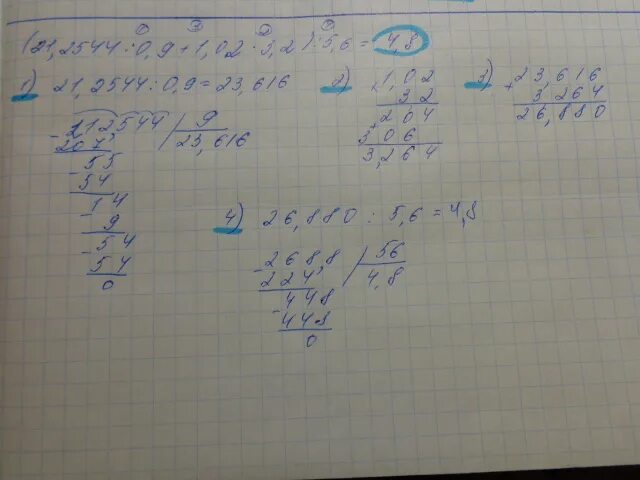 (21,2544:0,9+1,02·3,2):5,6=4,8
1) 21,2544:0,9=23,616
212544 | 9
23,616
207
55
54
14
9
54
54
0
2) 1,02
3,2
204
306
3,264
3) 23,616
+ 3,264
26,880
4) 26,880 : 5,6 = 4,8
268,8 | 56
224 4,8
448
448
0